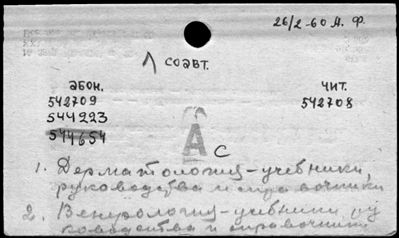 26/2-60 А. Ф.
соавт.
абон. чит.
542709 542708
544223
544654
А
с
1. Дерматология-учебники,
руководства и справочники
2. Венерология-учебники, ру
ководства и справочники